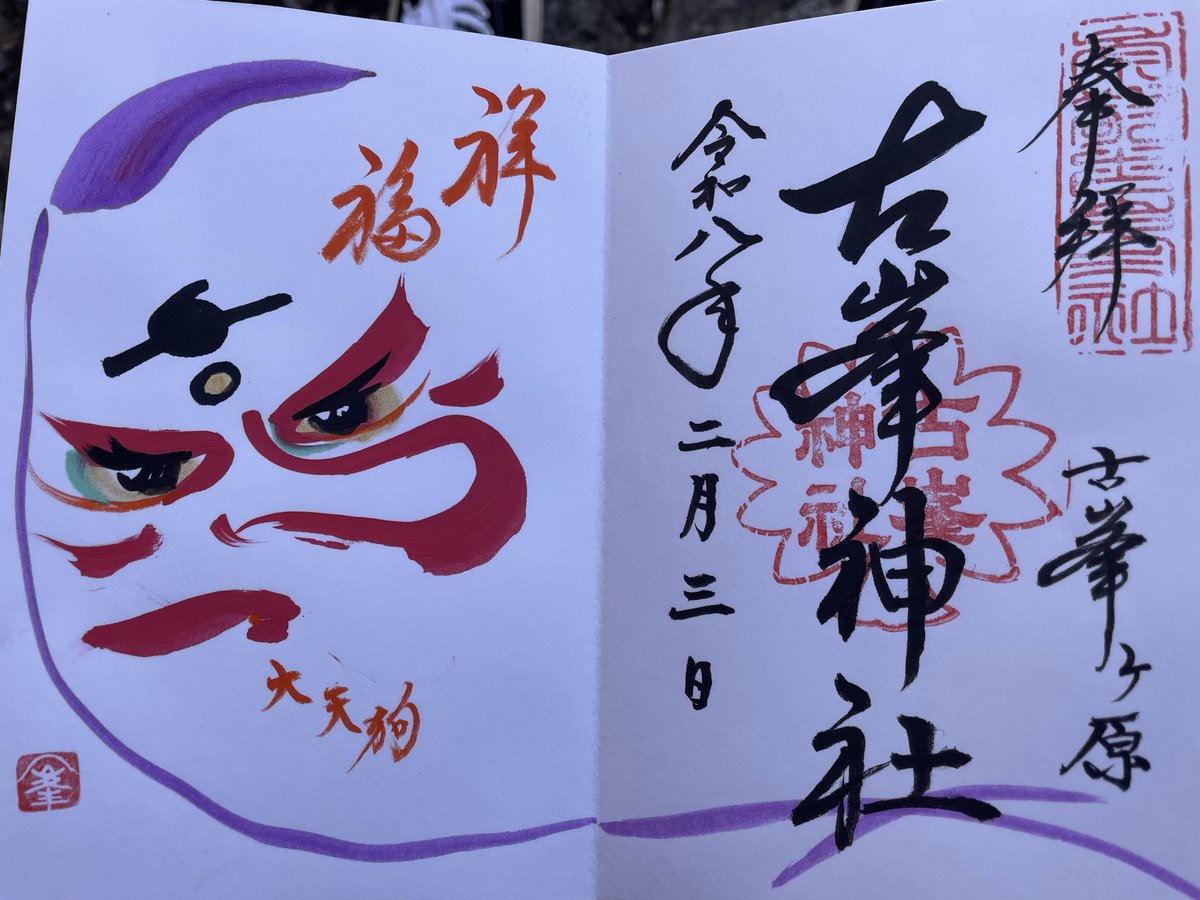 奉拝
古峯ヶ原
古峯神社
古峯神社
令和八年二月三日
祥福
大天狗